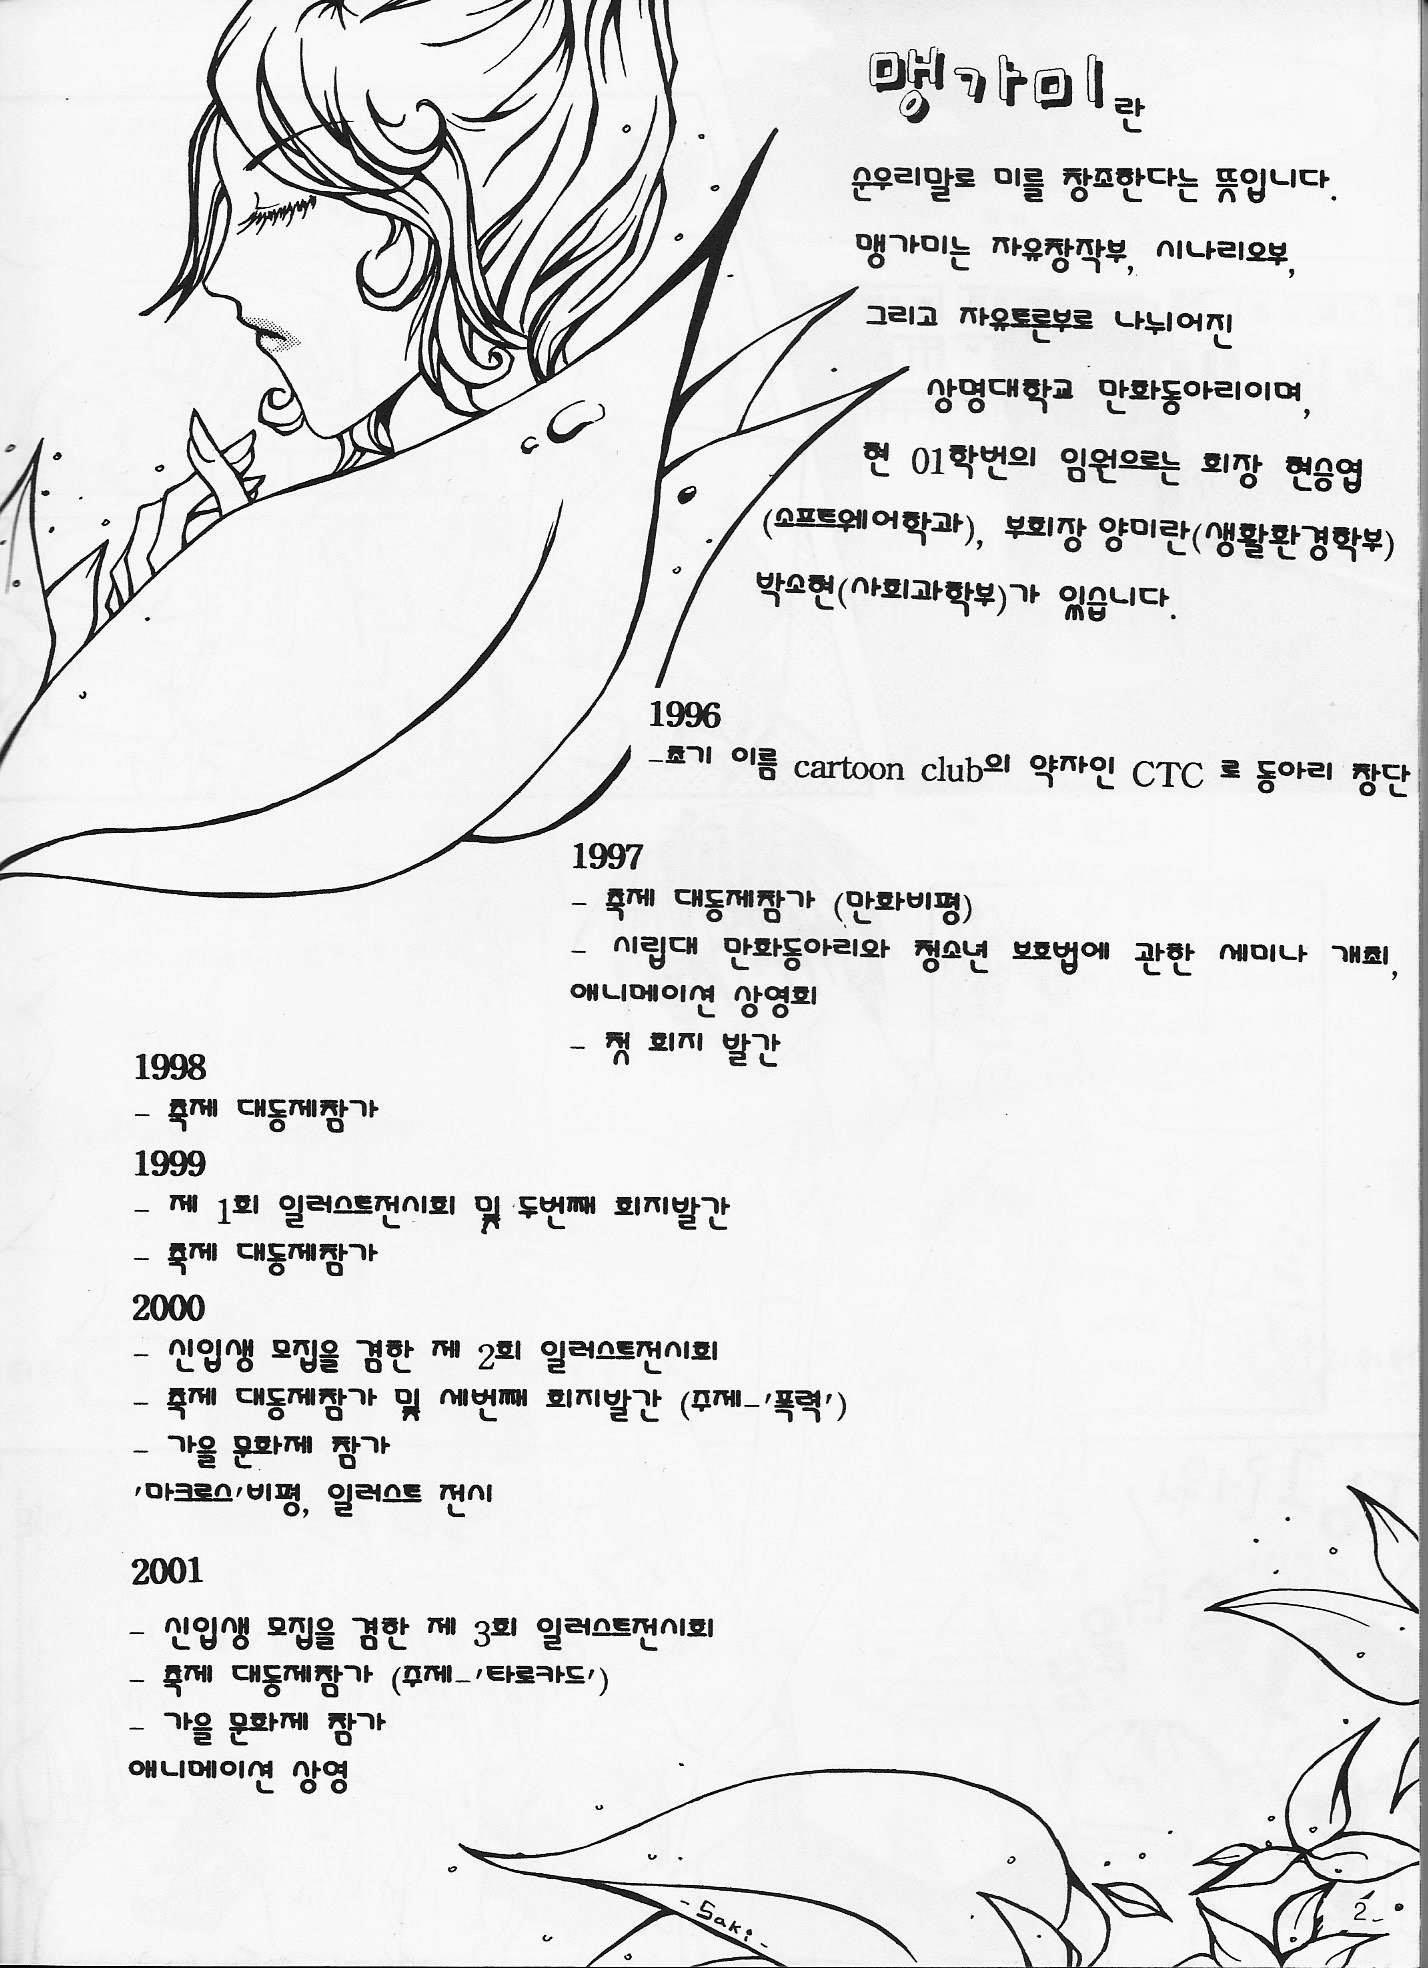 맹가미란
순우리말로 미를 창조한다는 뜻입니다.
맹가미는 자유창작부, 시나리오부,
그리고 자유토론부로 나뉘어진
상명대학교 만화동아리이며,
현 01학번의 임원으로는 회장 현승엽
(소프트웨어학과), 부회장 양미란(생활환경학부)
박소현(사회과학부)가 있습니다.
1996
-초기 이름 cartoon club의 약자인 CTC 로 동아리 창단
1997
- 축제 대동제참가 (만화비평)
- 시립대 만화동아리와 청소년 보호법에 관한 세미나 개최,
애니메이션 상영회
- 첫 회지 발간
1998
- 축제 대동제참가
1999
- 제 1회 일러스트전시회 및 두번째 회지발간
- 축제 대동제참가
2000
- 신입생 모집을 겸한 제 2회 일러스트전시회
- 축제 대동제참가 및 세번째 회지발간 (주제-'폭력')
- 가을 문화제 참가
'마크로스'비평, 일러스트 전시
2001
- 신입생 모집을 겸한 제 3회 일러스트전시회
- 축제 대동제참가 (주제-'타로카드')
- 가을 문화제 참가
애니메이션 상영
-Saki-
2-